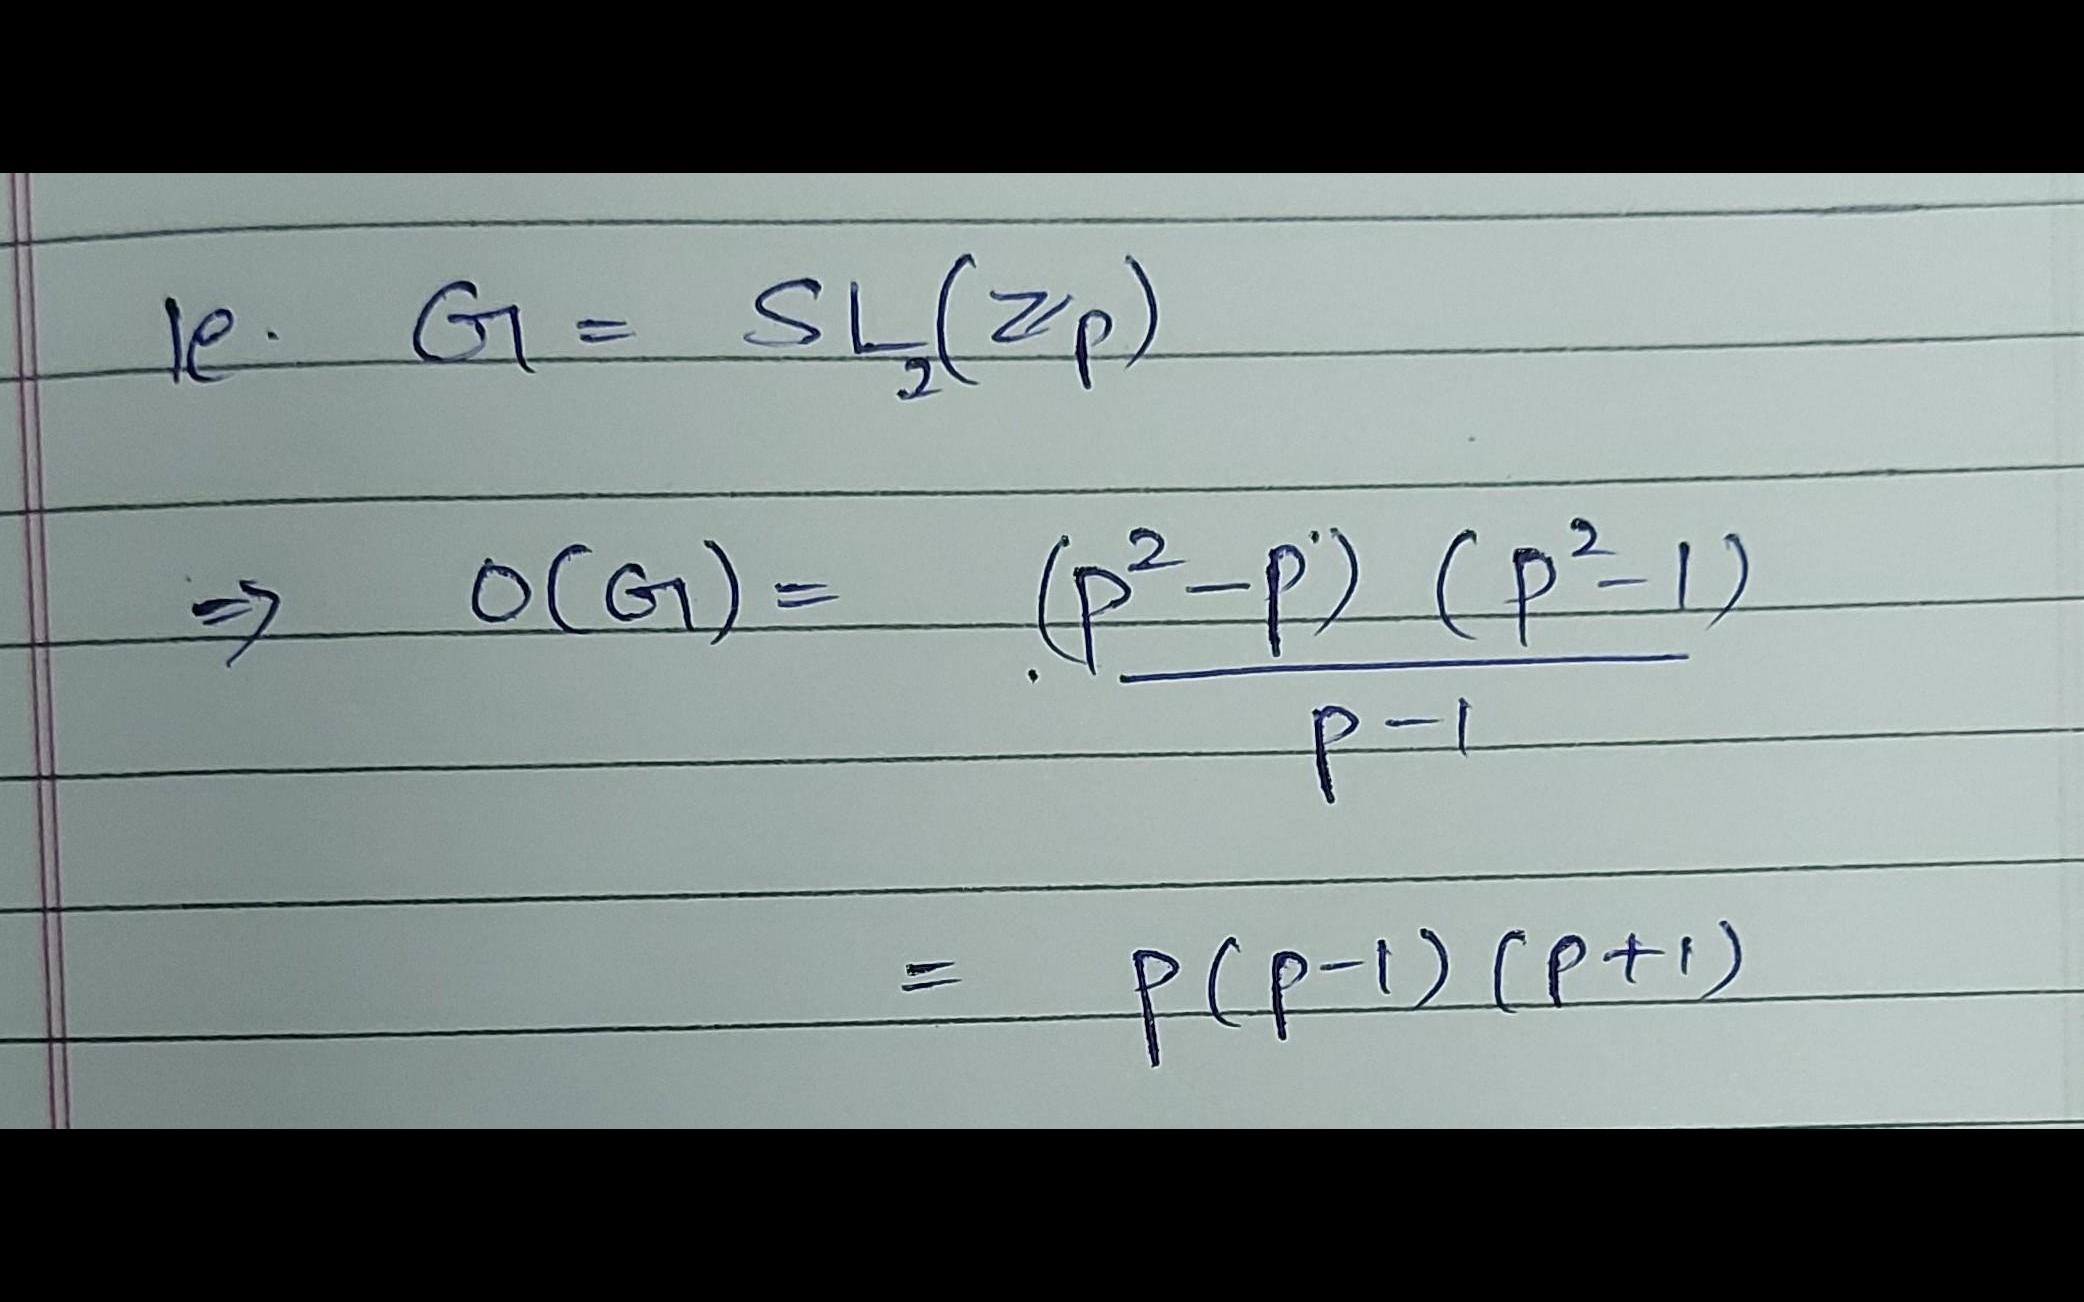 ie. G = SL₂(ℤp)
⇒ O(G) = (p² - p) (p² - 1)
p - 1
= p(p-1) (p+1)